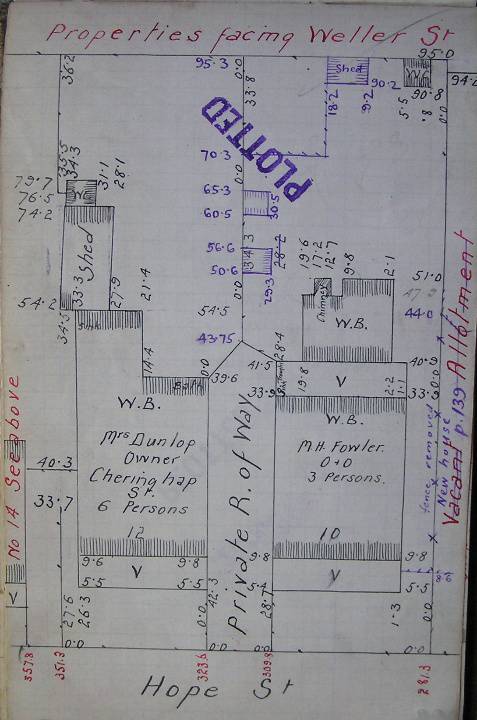 Properties facing Weller St
95.3
0.0
95.0
36.2
33.8
Shed
90.2
94.0
18.2
9.2
5.5
90.8
.8
0.0
PLOTTED
70.3
0.0
35.5
34.3
31.1
28.1
79.7
76.5
74.2
65.3
60.5
30.5
Shed
56.6
50.6
0.0
3
28.2
29.3
19.6
17.2
12.7
9.8
2.1
51.0
47.9
44.0
Chimney
W.B.
54.2
33.3
27.9
21.4
54.5
34.5
43.75
28.4
14.4
0.0
39.6
41.5
33.9
Bath
Bathroom
19.8
V
2.2
1.1
40.9
0.0
33.9
W.B.
Mrs Dunlop
Owner
Cheringhap
St.
6 Persons
12
Private R. of Way
W.B.
M.H. Fowler.
O+O
3 Persons.
10
Vacant p.139 Allotment
fence removed
New house
No 14 See above
40.3
33.7
V
9.6
9.8
V
5.5
5.5
9.8
5.4
V
9.8
5.5
27.6
26.3
0.0
42.3
28.7
1.3
0.0
0.0
0.0
0.0
0.0
357.8
351.3
323.6
309.8
281.3
Hope St